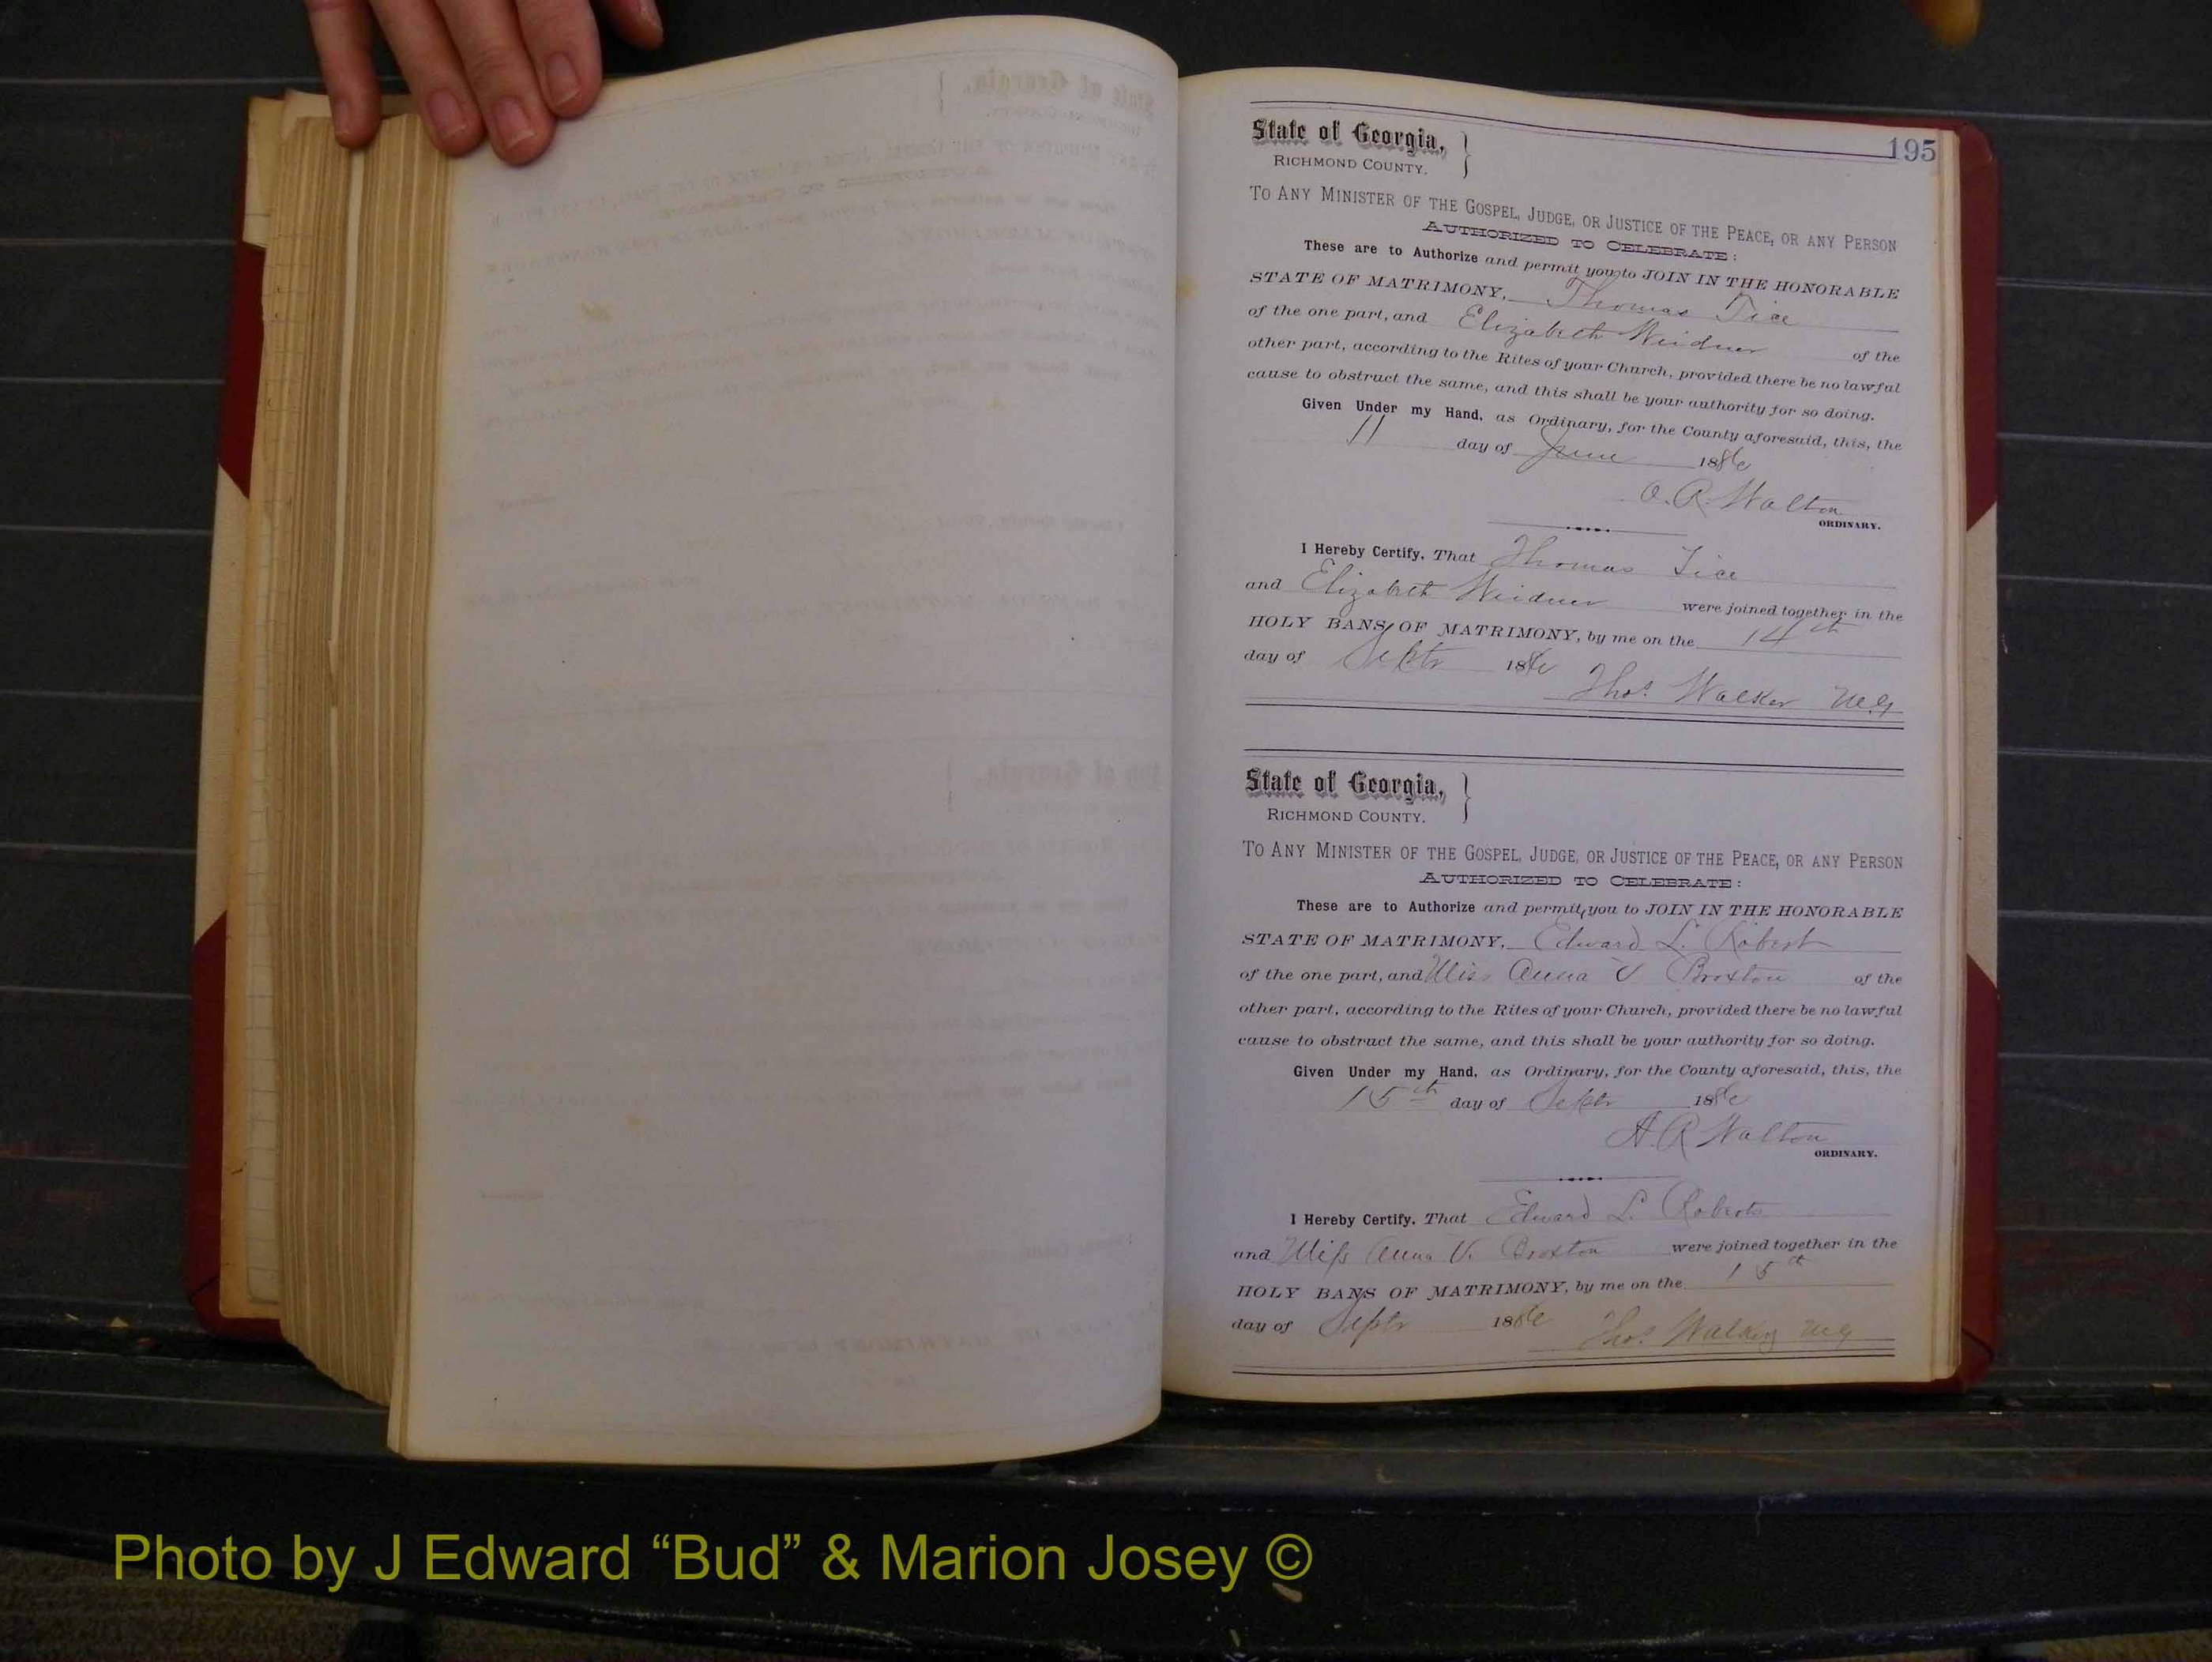 195
State of Georgia, }
RICHMOND COUNTY.
TO ANY MINISTER OF THE GOSPEL, JUDGE, OR JUSTICE OF THE PEACE, OR ANY PERSON
AUTHORIZED TO CELEBRATE:
These are to Authorize and permit you to JOIN IN THE HONORABLE
STATE OF MATRIMONY, Thomas Tice
of the one part, and Elizabeth Weidner of the
other part, according to the Rites of your Church, provided there be no lawful
cause to obstruct the same, and this shall be your authority for so doing.
Given Under my Hand, as Ordinary, for the County aforesaid, this, the
11 day of June 1886
A. R. Walton
ORDINARY.
I Hereby Certify, That Thomas Tice
and Elizabeth Weidner were joined together in the
HOLY BANS OF MATRIMONY, by me on the 14th
day of Septr 1886
Thos. Walker M.G
State of Georgia, }
RICHMOND COUNTY.
TO ANY MINISTER OF THE GOSPEL, JUDGE, OR JUSTICE OF THE PEACE, OR ANY PERSON
AUTHORIZED TO CELEBRATE:
These are to Authorize and permit you to JOIN IN THE HONORABLE
STATE OF MATRIMONY, Edward L. Robert
of the one part, and Miss Anna V Broxton of the
other part, according to the Rites of your Church, provided there be no lawful
cause to obstruct the same, and this shall be your authority for so doing.
Given Under my Hand, as Ordinary, for the County aforesaid, this, the
15th day of Septr 1886
A. R Walton
ORDINARY.
I Hereby Certify, That Edward L. Roberts
and Miss Anna V. Broxton were joined together in the
HOLY BANS OF MATRIMONY, by me on the 15th
day of Septr 1886
Thos. Walker M G
Photo by J Edward “Bud” & Marion Josey ©